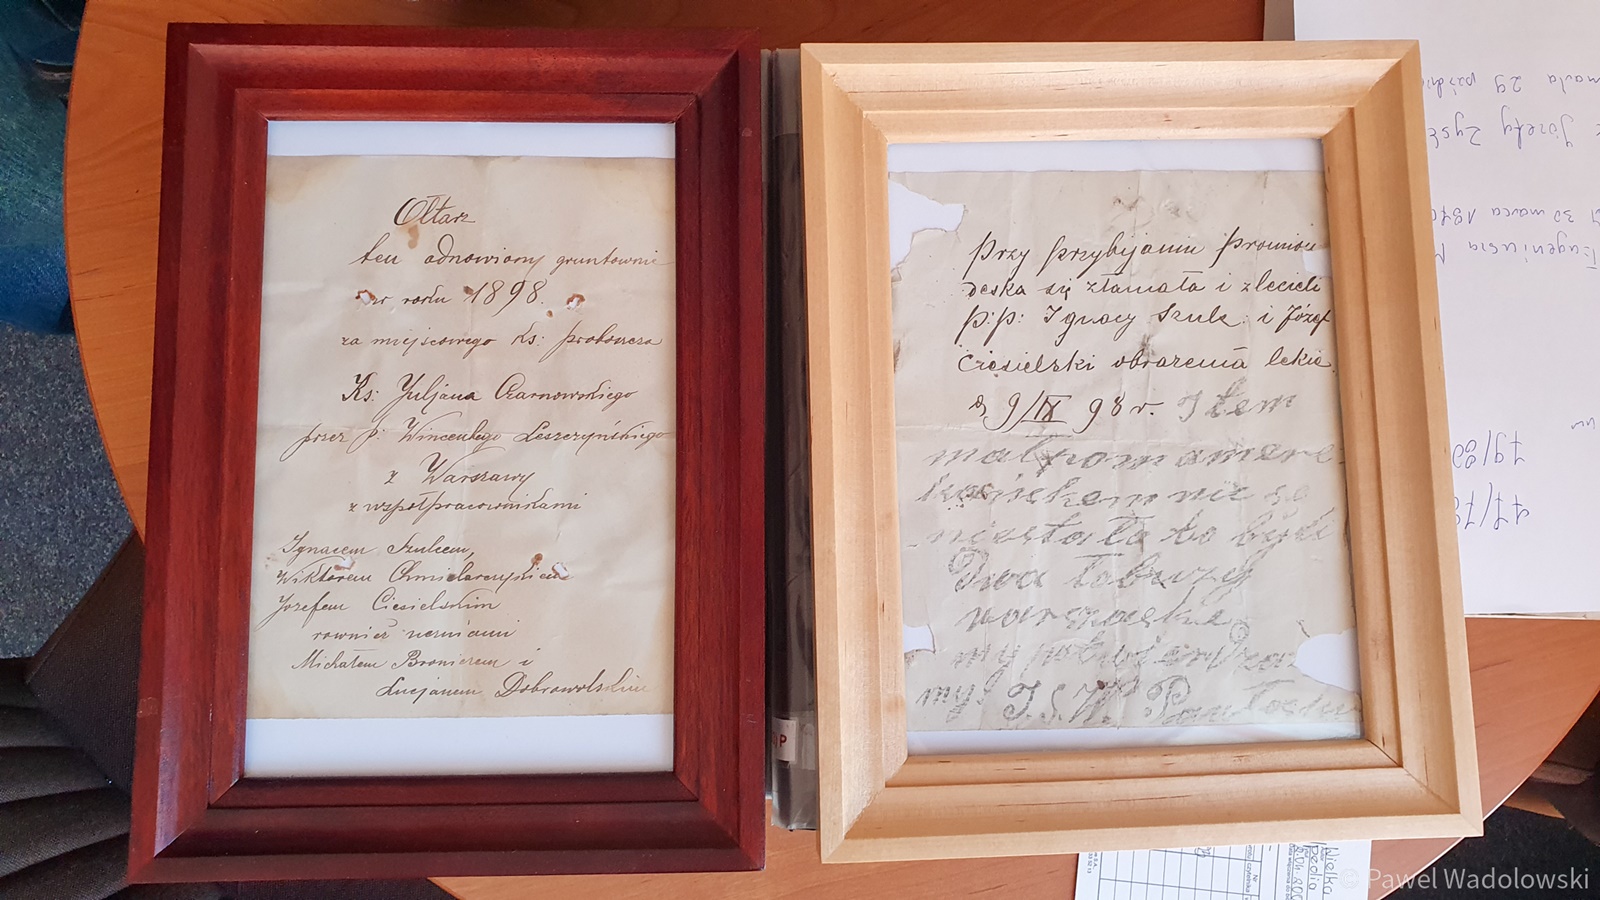 Ołtarz
ten odnowiony gruntownie
w roku 1898.
za miejscowego Ks: proboszcza
Ks: Juljana Czarnowskiego
przez p: Wincentego Leszczyńskiego
z Warszawy
z współpracownikami
Ignacem Szulcem,
Wiktorem Chmielarczykiem
Józefem Ciesielskim
również uczniami
Michałem Bronierem i
Lucjanem Dobrowolskim
Przy przybijaniu promieni
deska się złamała i zlecieli
p:p: Ignacy Szulc i Józef
Ciesielski obrażenia lekie.
d, 9/IX 98 r. I tem
nic se
niestało to byli
Dwa łobuzy
warszaskie
my
T. S. W.
79/80
77/78
30 marca
Eugeniusza
Józefy
29
UP
Wielka
pedia
Nr
© Pawel Wadolowski